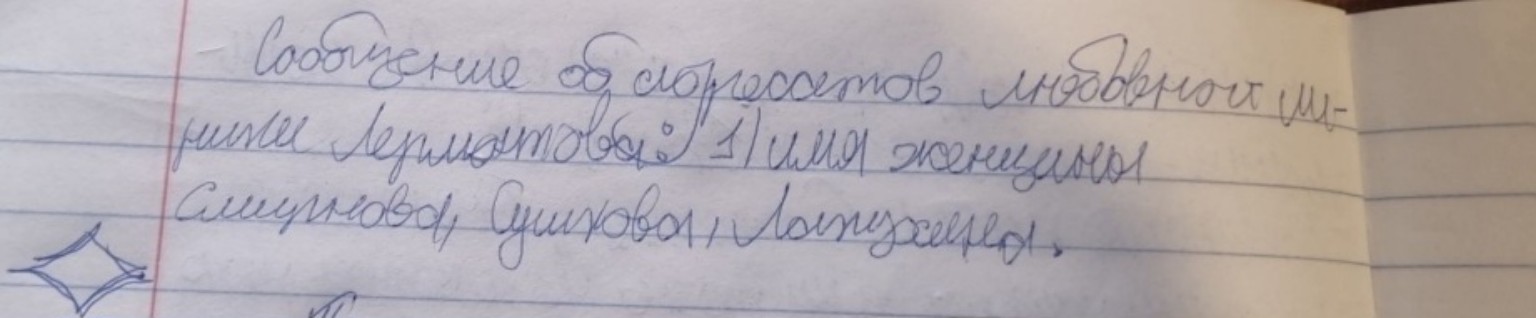 Сообщение об адресатов любовной ли-
рики Лермонтова: 1) имя женщины
Смирнова, Сушкова, Лопухина.